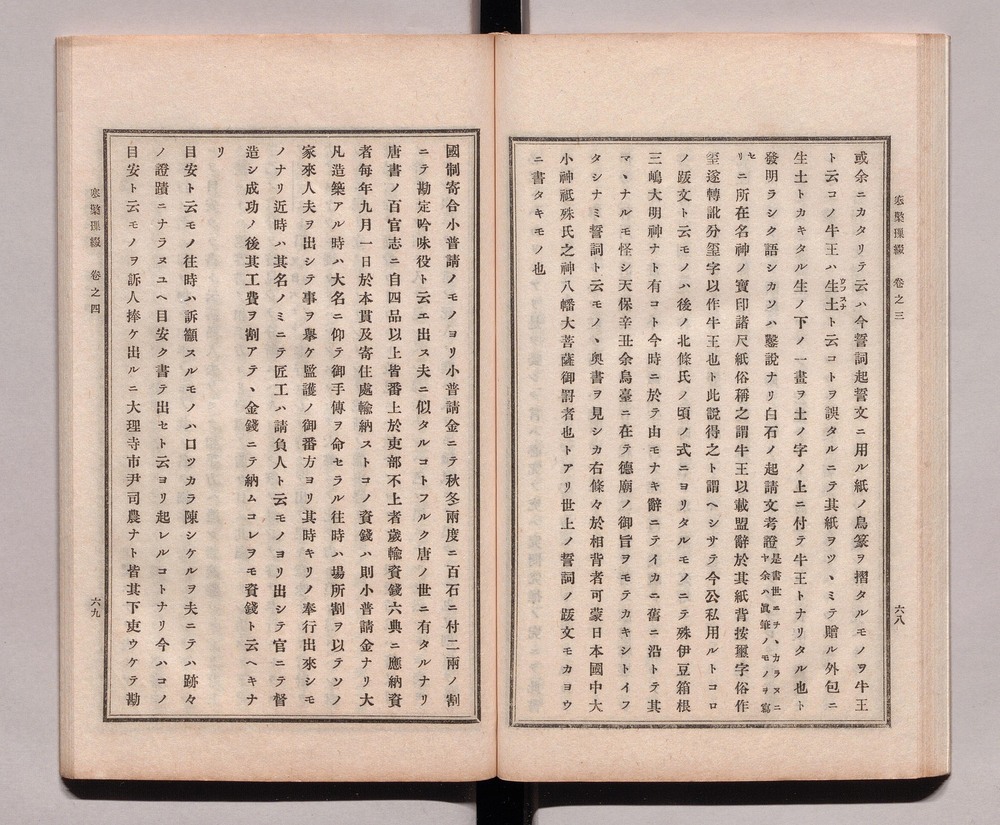 寒檠璅綴　卷之三
六八
或余ニカタリテ云ハ今誓詞起誓文ニ用ル紙ノ鳥篆ヲ摺タルモノヲ牛王
ト云コノ牛王ハ生土ト云コトヲ誤タルニテ其紙ヲツヽミテ贈ル外包ニ
ウブスナ
生土トカキタル生ノ下ノ一畫ヲ土ノ字ノ上ニ付テ牛王トナリタル也ト
發明ラシク語シカソハ鑿說ナリ白石ノ起請文考證是書世ニテヽカラスニヤ余ハ眞筆ノモノヲ寫
セリニ所在名神ノ寶印諸尺紙俗稱之謂牛王以載盟辭於其紙背按璽字俗作
玺遂轉訛分玺字以作牛王也ト此說得之ト謂ヘシサテ今公私用ルトコロ
ノ跋文ト云モノハ後ノ北條氏ノ頃ノ式ニヨリタルモノニテ殊伊豆箱根
三嶋大明神ナト有コト今時ニ於テ由モナキ辭ニテイカニ舊ニ沿トテ其
マヽナルモ怪シ天保辛丑余鳥臺ニ在テ德廟ノ御旨ヲモテカキシトイフ
タシナミ誓詞ト云モノヽ奧書ヲ見シカ右條々於相背者可蒙日本國中大
小神祇殊氏之神八幡大菩薩御罸者也トアリ世上ノ誓詞ノ跋文モカヨウ
ニ書タキモノ也
國制寄合小普請ノモノヨリ小普請金ニテ秋冬兩度ニ百石ニ付二兩ノ割
ニテ勘定吟味役ト云エ出ス夫ニ似タルコトフルク唐ノ世ニ有タルナリ
唐書ノ百官志ニ自四品以上皆番上於吏部不上者歲輸資錢六典ニ應納資
者每年九月一日於本貫及寄住處輸納ストコノ資錢ハ則小普請金ナリ大
凡造築アル時ハ大名ニ仰テ御手傳ヲ命セラル往時ハ場所割ヲ以テソノ
家來人夫ヲ出シテ事ヲ擧ケ監護ノ御番方ヨリ其時キリノ奉行出來シモ
ノナリ近時ハ其名ノミニテ匠工ハ請負人ト云モノヨリ出シテ官ニテ督
造シ成功ノ後其工費ヲ割アテヽ金錢ニテ納ムコレヲモ資錢ト云ヘキナ
リ
目安ト云モノ往時ハ訴籲スルモノハ口ツカラ陳シケルヲ夫ニテハ跡々
ノ證蹟ニナラヌユヘ目安ク書テ出セト云ヨリ起レルコトナリ今ハコノ
目安ト云モノヲ訴人捧ケ出ルニ大理寺市尹司農ナト皆其下吏ウケテ勘
寒檠璅綴　卷之四
六九